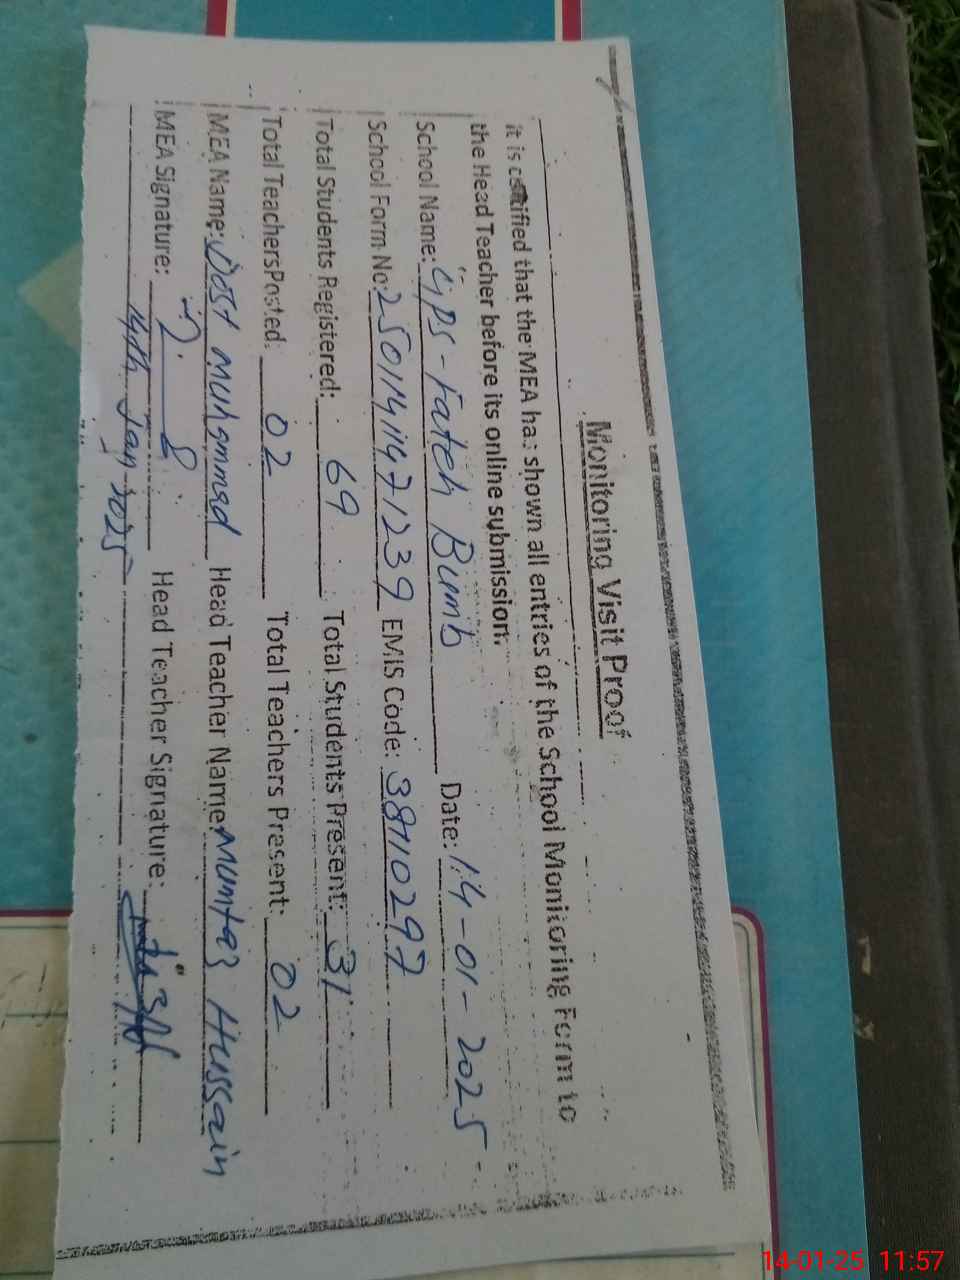 Monitoring Visit Proof
it is certified that the MEA has shown all entries of the School Monitoring Form to
the Head Teacher before its online submission.
School Name: GPS - Fateh Bumb Date: 14-01-2025
School Form No: 25011411471239 EMIS Code: 38110297
Total Students Registered: 69 Total Students Present: 31
Total TeachersPosted: 02 Total Teachers Present: 02
MEA Name: Dost Muhammad Head Teacher Name: Mumtaz Hussain
MEA Signature: Head Teacher Signature:
14th Jan 2025
14-01-25 11:57